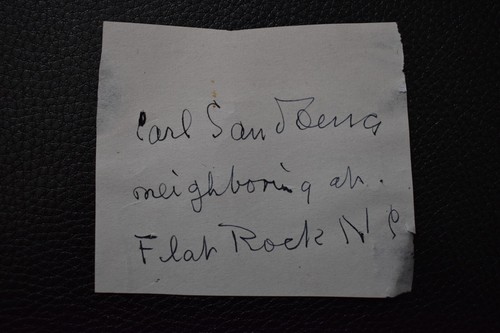 Carl Sandburg
neighboring at.
Flat Rock N C